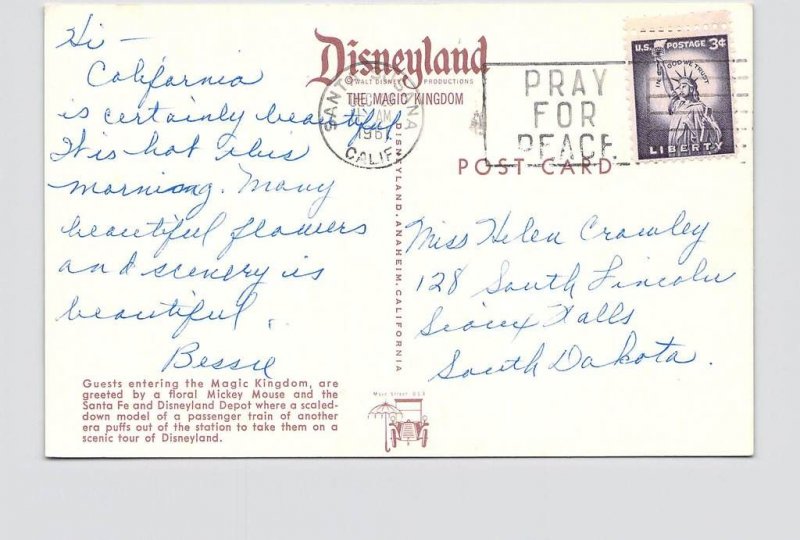 Hi -
California
is certainly beautiful
It is hot this
morning. Many
beautiful flowers
and scenery is
beautiful.
Bessie
Guests entering the Magic Kingdom, are
greeted by a floral Mickey Mouse and the
Santa Fe and Disneyland Depot where a scaled-
down model of a passenger train of another
era puffs out of the station to take them on a
scenic tour of Disneyland.
Disneyland
© WALT DISNEY PRODUCTIONS
THE MAGIC KINGDOM
SANTA ANA
AM
CALIF.
DISNEYLAND, ANAHEIM, CALIFORNIA
Main Street U.S.A
PRAY
FOR
PEACE
U.S. POSTAGE 3¢
IN GOD WE TRUST
LIBERTY
POST CARD
Miss Helen Crowley
128 South Lincoln
Sioux Falls
South Dakota.